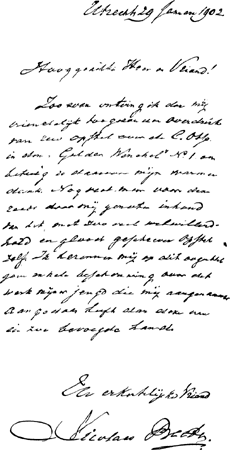 Utrecht 29 Januari 1902.
Hooggeachte Heer en Vriend!
Zoo even ontving ik den mij
vriendelijk toegezonden overdruk
van Uw opstel over de C. Obs.
in den Gulden Winckel No 1 en
betuig U daarvoor mijn warmen
dank. Nog veel meer voor den
door mij genoten inhoud
van dit met zoo veel welwillend-
heid en geschreven opstel
zelf. Ik herinner mij op dit oogenblik
geen enkele beschouwing over dit
werk mijner jeugd die mij aangenamer
aangedaan heeft dan deze van
zoo bevoegde hand.
Uw erkentelijke Vriend
Nicolaas Beets.